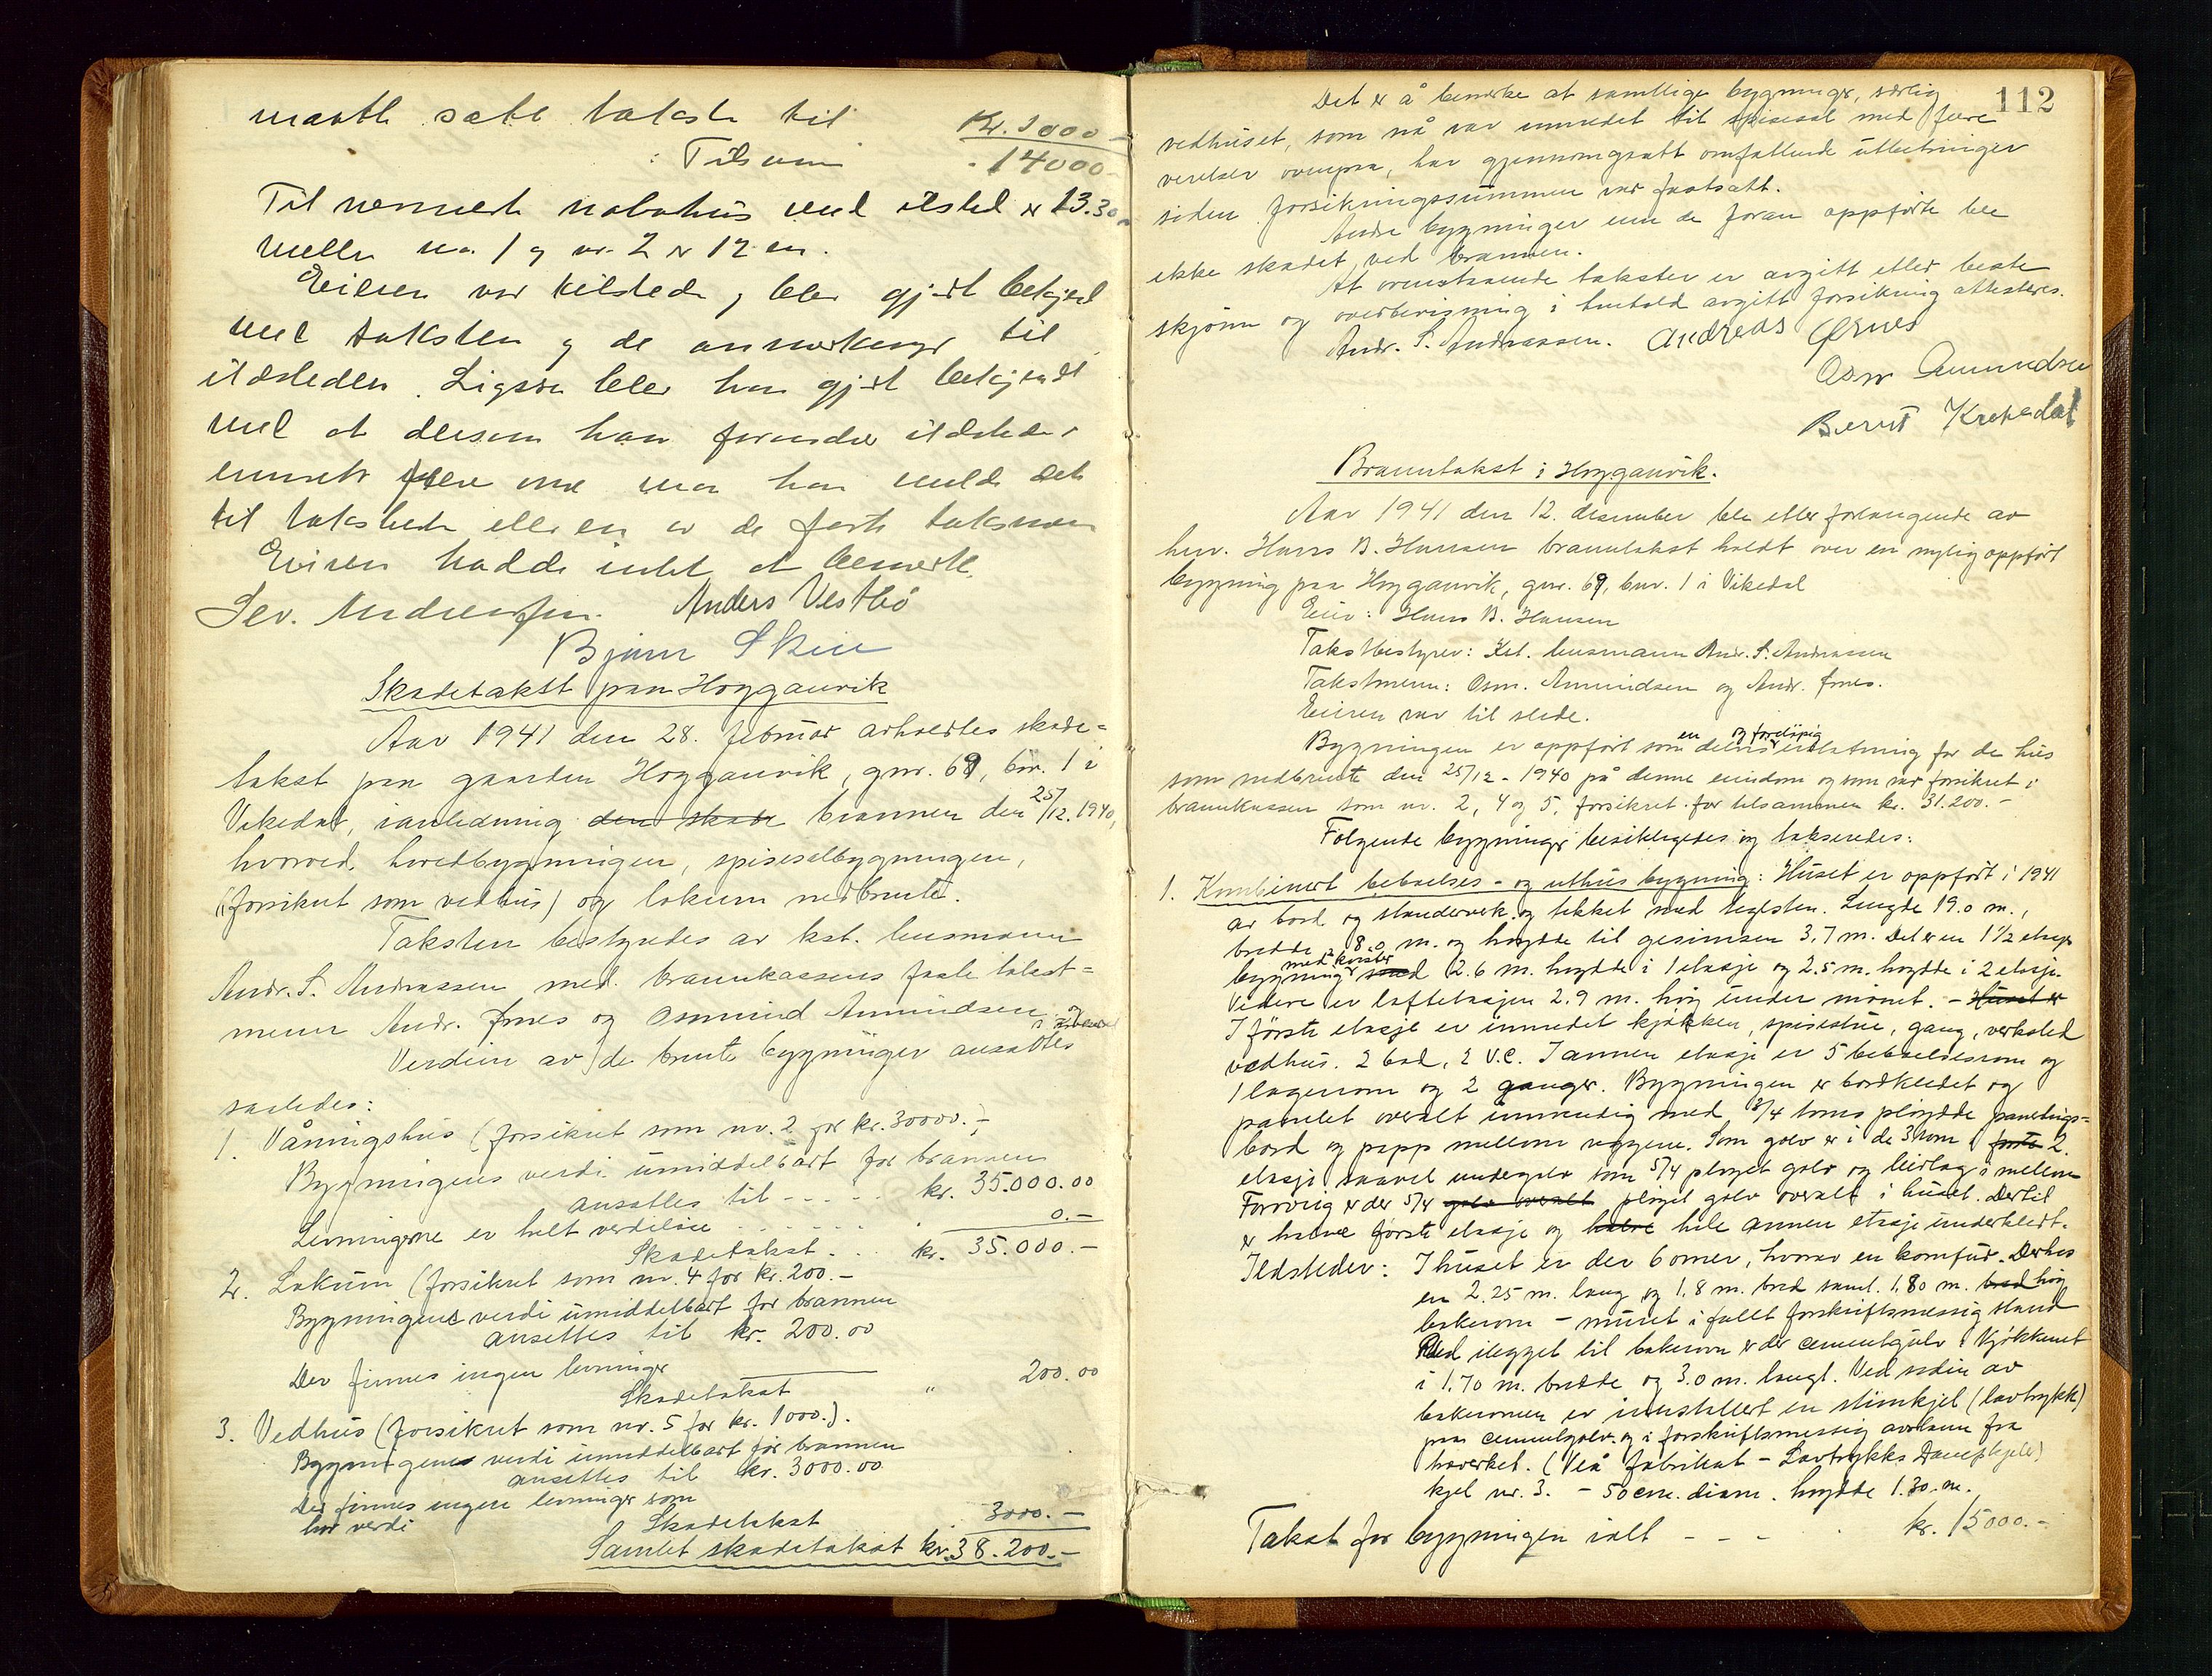 maatte sætte taksten til Kr. 2000 –
: Tilsam - 14000 -
Til nærmeste nabohus med ilsted er 13.30 m
mellem no. 1 og nr. 2 er 12 m.
Eieren var tilstede og blev gjort bekjent
med taksten og de anmerkninger til
ildstedene. Ligsaa blev han gjort bekjendt
med at dersom han forandrer ildsteder
innsett flere ovne maa han melde det
til lensmannen eller en av de faste taksmen
Eieren hadde intet at bemerke.
Sev. Andreassen. Anders Vestbö
Bjarne Skeie
Skadetakst paa Hogganvik
Aar 1941 den 28. februar avholdtes skade=
takst paa gaarden Hogganvik, gnr. 69, bnr. 1 i
Vikedal, i anledning den skade brannen den 25/12. 1940,
hvorved hovedbygningen, spisesalbygningen,
(forsikret som vedhus) og lokum nedbrente.
Taksten bestyredes av kst. lensmann
Andr. S. Andreassen med brannkassens faste takst=
menn Andr. Ørnes og Osmund Amundsen
Verdien av de brente bygninger ansattes
saaledes:
1. Våningshus (forsikret som nr. 2 for kr. 30000.-)
Bygningens verdi umiddelbart før brannen
ansattes til - - - - - kr. 35.000.00
Levningene er helt verdiløse - - - - - - 0.–
Skadetakst. - - kr. 35.000.–
2. Lokum (forsikret som nr. 4 for kr. 200.–
Bygningens verdi umiddelbart før brannen
ansettes til kr. 200.00
Der finnes ingen levninger
Skadetakst " 200.00
3. Vedhus (forsikret som nr. 5 for kr. 1000.).
Bygningens verdi umiddelbart før brannen
ansettes til kr. 3000.00
Der finnes ingen levninger som
har verdi
Skadetakst 3000.–
Samlet skadetakst kr. 38.200.–
112
Det er å bemerke at samtlige bygninger, særlig
vedhuset, som nå var innredet til spisesal med flere
verelser ovenpaa, har gjennomgaatt omfattende utbetringer
siden forsikringssummen var fastsatt.
Andre bygninger enn de foran oppførte ble
ikke skadet ved brannen.
At ovenstaaende takster er avgitt etter beste
skjønn og overbevisning i henhold avgitt forsikring attesteres.
Andr. S. Andreassen. Andreas Ørnes
Osm Amundsen
Bernt Krakedal
Branntakst i Hogganvik.
Aar 1941 den 12. desember ble etter forlangende av
herr. Hans B. Hansen branntakst holdt over en nylig oppført
bygning paa Hogganvik, gnr. 69, bnr. 1 i Vikedal
Eier: Hans B. Hansen
Takstbestyrer: Kst. lensmann Andr. S. Andreassen
Takstmenn: Osm. Amundsen og Andr. Ørnes.
Eieren var til stede.
Bygningen er oppført som en delvis og foreløpig erstatning for de hus
som nedbrente den 25/12 - 1940 på denne eiendom og som var forsikret i
brannkassen som nr. 2, 4 og 5, forsikret for tilsammen kr. 31.200.–
Følgende bygninger besiktigedes og takseredes:
1. Kombinert beboelses- og uthusbygning: Huset er oppført i 1941
av bord og standerverk og tekket med teglsten. Lengde 19.0 m.,
bredde 8.0 m. og høgde til gesimsen 3,7 m. Det er en 1 1/2 etasjes
bygning med kvister med 2.6 m. høgde i 1 etasje og 2.5 m. høgde i 2 etasje.
Videre er loftetasjen 2.9 m. høg under mønet. – Huset er
I første etasje er innredet kjøkken, spisestue, gang, verksted
vedhus. 2 bad, 2 V.C. I annen etasje er 5 beboelsesrom og
1 lagerrom og 2 ganger. Bygningen er bordkledet og
panelet overalt innvendig med 3/4 toms pløgde panelings=
bord og papp mellom veggene. Som golv er i de 3 rom i første 2.
etasje saavel undergolv som 5/4 pløget golv og leirlag i mellem
Forøvrig er der 5/4 golv overalt pløget golv overalt i huset. Dertil
er halve første etasje og halve hele annen etasje underkledt.
Ildsteder: I huset er der 6 ovner, hvorav en komfur. Derhos
en 2.25 m. lang og 1.8 m. bred samt 1.80 m. bred høg
bakerovn – muret i fullt forskriftsmessig stand
Ved ilegget til bakerovn er der cementgulv i kjøkkenet
i 1.70 m. bredde og 3.0 m. langt. Ved siden av
bakerovnen er innstallert en stimkjel (lavtrykk)
paa cementgolv og i forskriftsmessig avstann fra
treverket. (Veå fabrikat – Lavtrykks Dampkjele)
kjel nr. 3. – 50 cm. diam. høgde 1.30 m.
Takst for bygningen ialt - - - kr. 15000.–